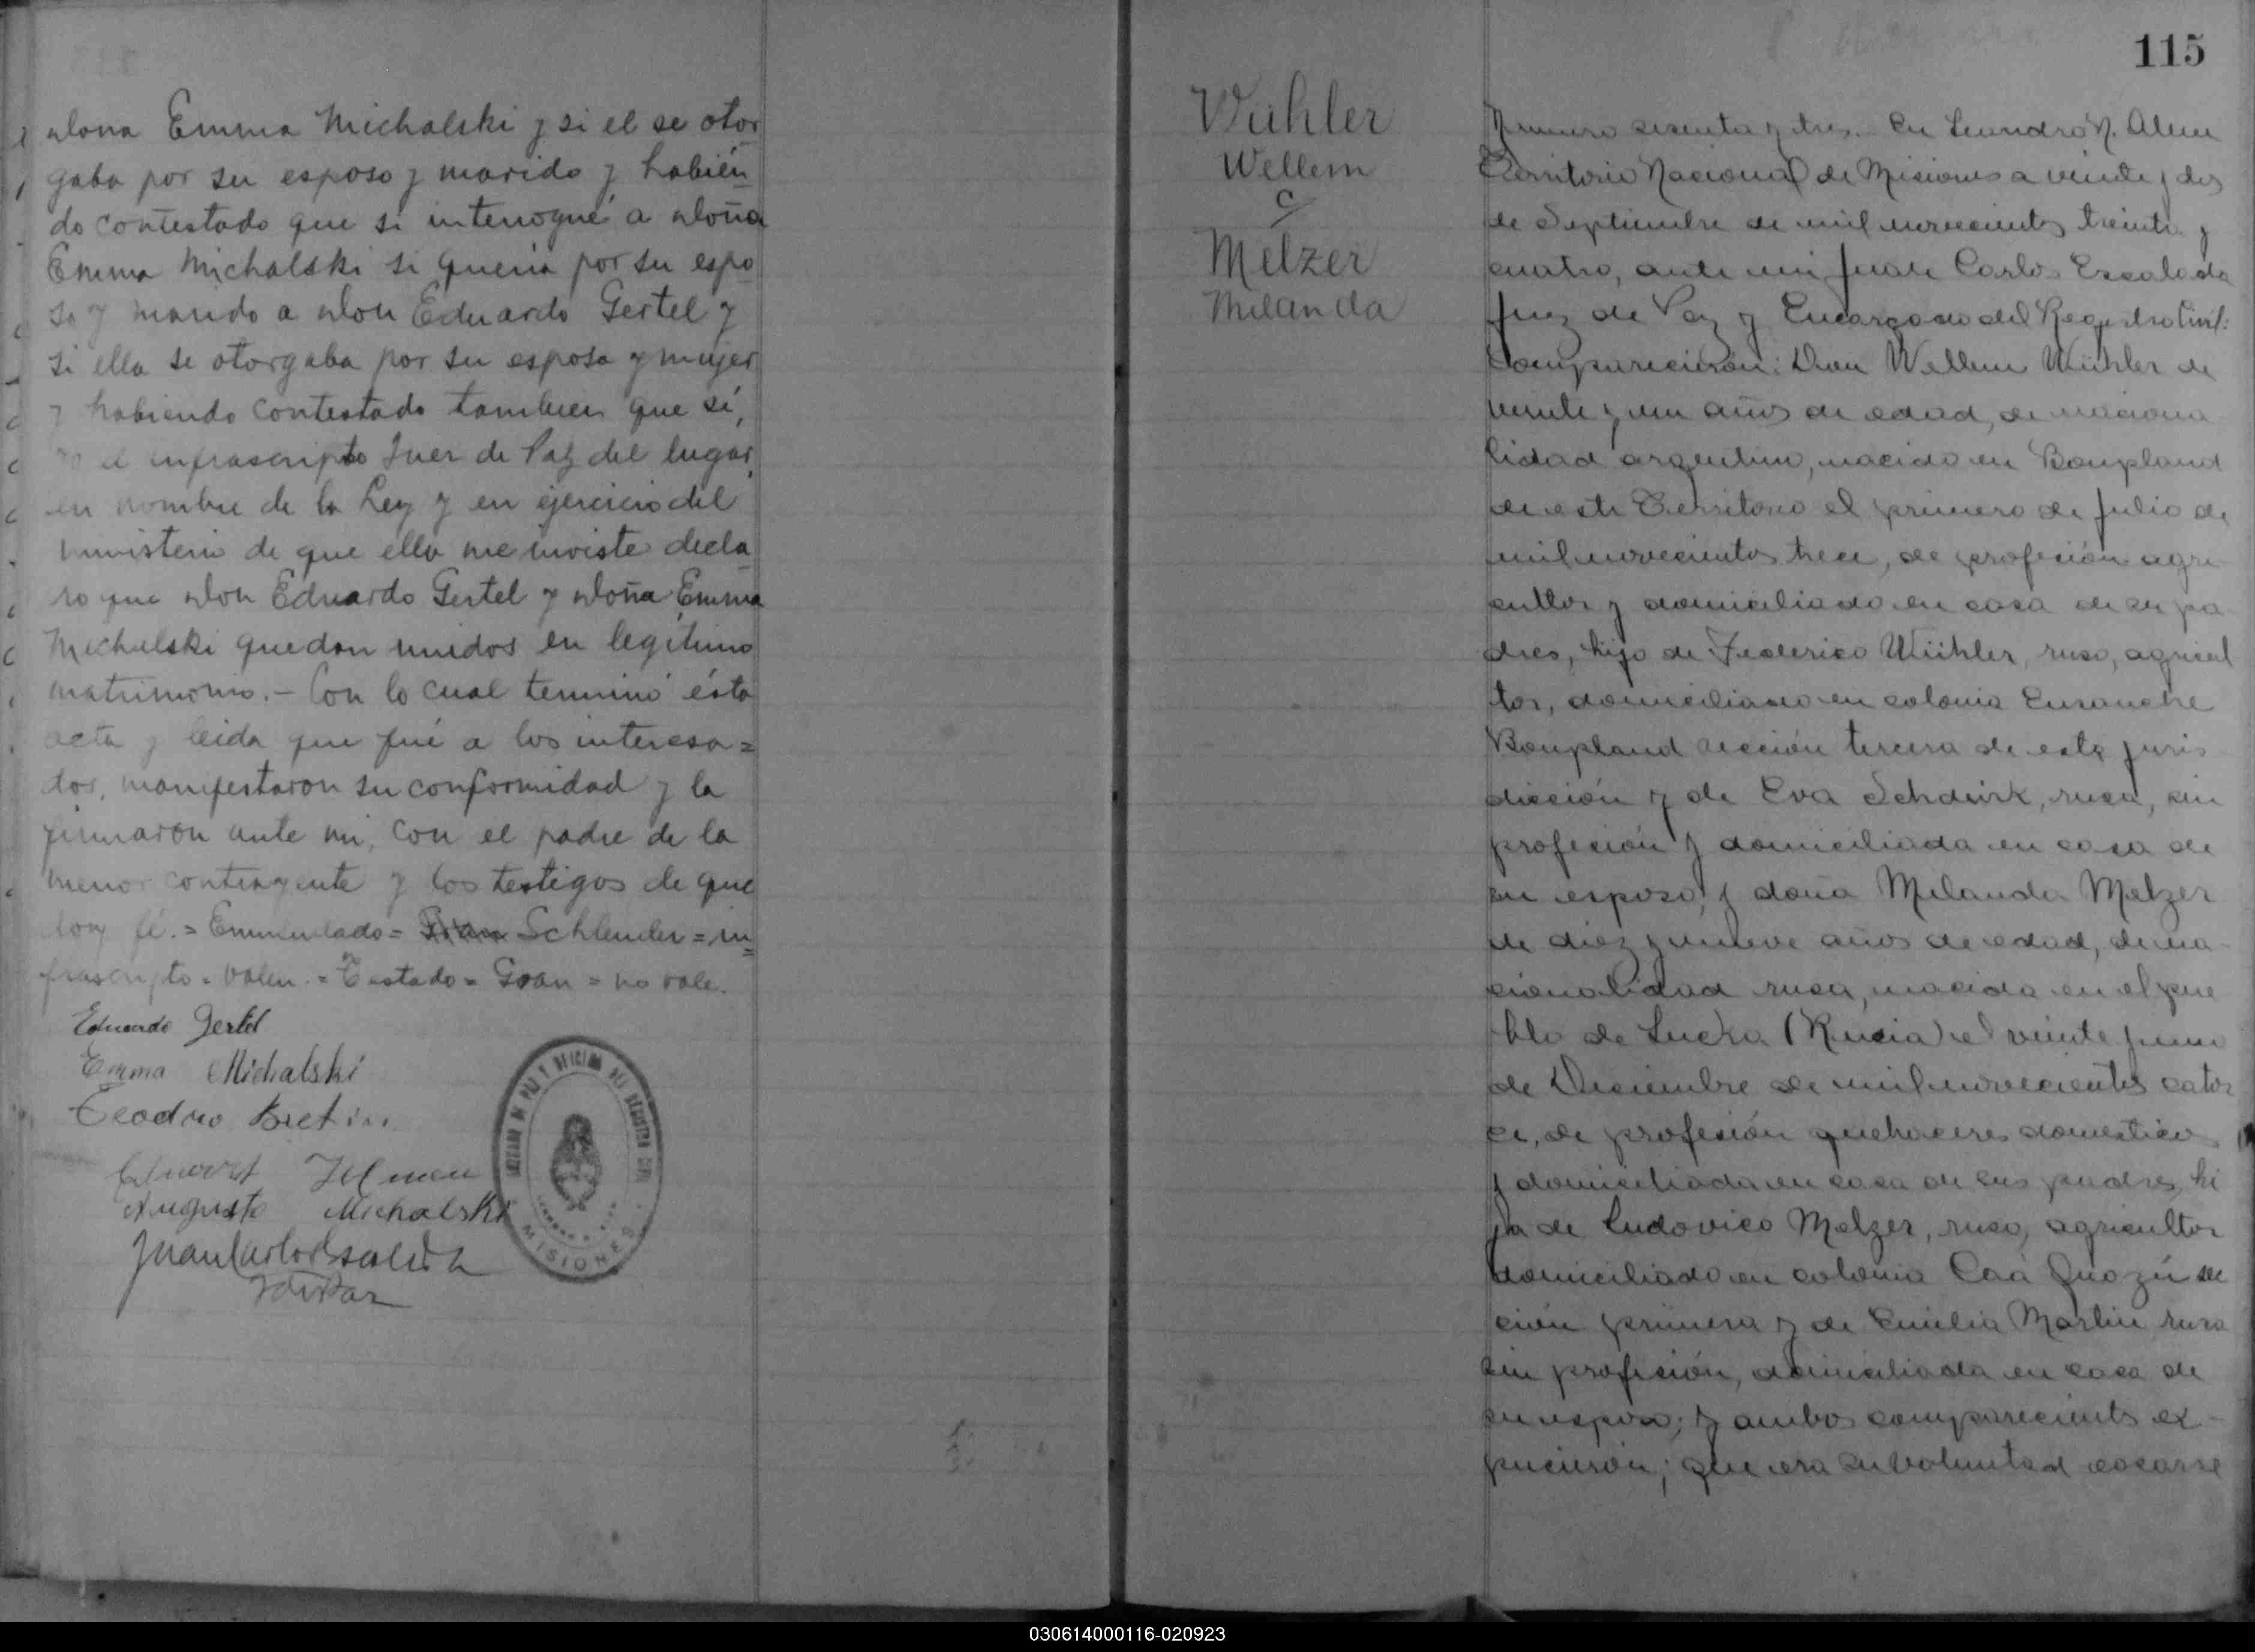 doña Emma Michalski y si el se otor
gaba por su esposo y marido y habién
do contestado que si interrogué a doña
Emma Michalski si queria por su espo
so y marido a don Eduardo Gertel y
si ella se otorgaba por su esposa y mujer
y habiendo contestado tambien que sí,
yo el infrascripto Juez de Paz del lugar,
en nombre de la Ley y en ejercicio del
ministerio de que ella me inviste decla
ro que don Eduardo Gertel y doña Emma
Michalski quedan unidos en legítimo
matrimonio.- Con lo cual terminó ésta
acta y leida que fué a los interesa=
dos, manifestaron su conformidad y la
firmaron ante mi, con el padre de la
menor contrayente y los testigos de que
doy fé.= Enmendado= Schlender = in
frascripto = valen.= Testado = Gran = no vale.
Eduardo Gertel
Emma Michalski
Augusto Michalski
Juan Carlos Escalada
Juez de Paz
JUZGADO DE PAZ Y OFICINA DEL REGISTRO CIVIL
MISIONES
115
Wühler
Wellem
c/
Melzer
Milanda
Número sesenta y tres.- En Leandro N. Alem
Territorio Nacional de Misiones a veinte y dos
de Septiembre de mil novecientos treinta y
cuatro, ante mi Juan Carlos Escalada
Juez de Paz y Encargado del Registro Civil:
Comparecieron: Don Wellem Wühler de
veinte y un años de edad, de naciona
lidad argentino, nacido en Bonpland
de este Territorio el primero de Julio de
mil novecientos trece, de profesión agri
cultor y domiciliado en casa de su pa
dres, hijo de Federico Wühler, ruso, agricul
tor, domiciliado en colonia Ensanche
Bonpland sección tercera de esta juris
dicción y de Eva Schdwirk, rusa, sin
profesión y domiciliada en casa de
su esposo; y doña Milanda Melzer
de diez y nueve años de edad, de na-
cionalidad rusa, nacida en el pue
blo de Lucka (Rusia) el veinte y uno
de Diciembre de mil novecientos cator
ce, de profesión quehaceres domésticos
y domiciliada en casa de sus padres, hi
ja de Ludovico Melzer, ruso, agricultor
domiciliado en colonia Caá Guazú sec
ción primera y de Emilia Martin rusa
sin profesión, domiciliada en casa de
su esposo; y ambos comparecientes ex-
pusieron; que era su voluntad casarse
030614000116-020923